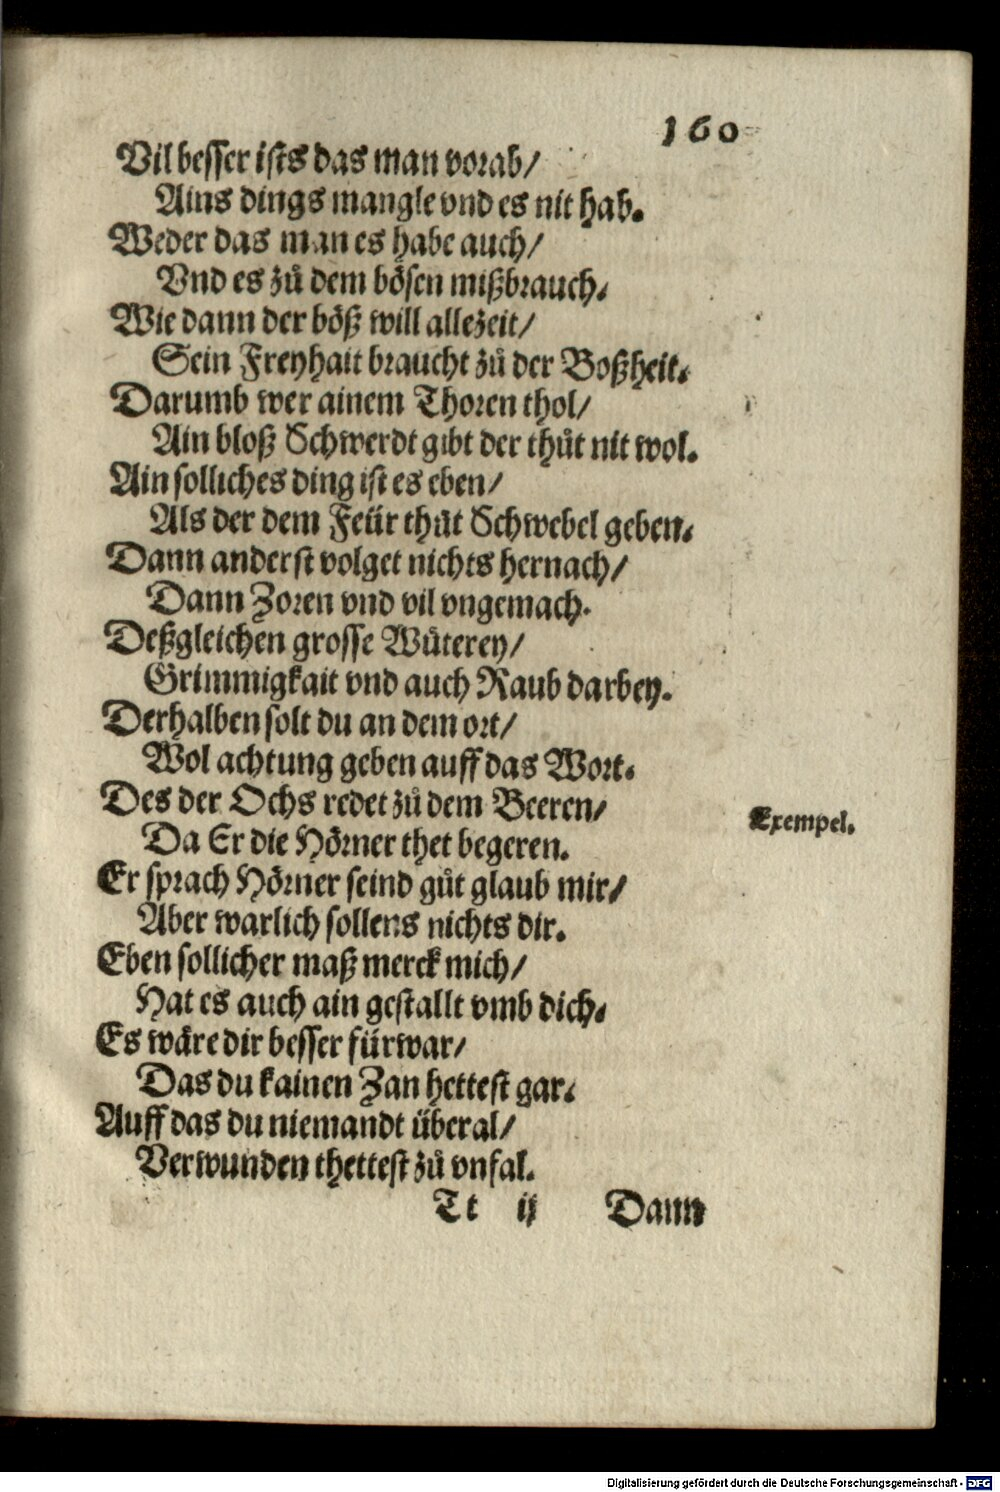 160
Vil besser ists das man vorab/
Ains dings mangle vnd es nit hab.
Weder das man es habe auch/
Vnd es zů dem bösen mißbrauch.
Wie dann der böß will allezeit/
Sein Freyhait braucht zů der Boßheit.
Darumb wer ainem Thoren thol/
Ain bloß Schwerdt gibt der thůt nit wol.
Ain solliches ding ist es eben/
Als der dem Feür thůt Schwebel geben.
Dann anderst volget nichts hernach/
Dann Zoren vnd vil vngemach.
Deßgleichen grosse Wůterey/
Grimmigkait vnd auch Raub darbey.
Derhalben solt du an dem ort/
Wol achtung geben auff das Wort.
Des der Ochs redet zů dem Beeren/
Exempel.
Da Er die Hörner thet begeren.
Er sprach Hörner seind gůt glaub mir/
Aber warlich sollens nichts dir.
Eben sollicher maß merck mich/
Hat es auch ain gestallt vmb dich.
Es wäre dir besser fürwar/
Das du kainen Zan hettest gar.
Auff das du niemandt überal/
Verwunden thettest zů vnfal.
Tt ij Dann
Digitalisierung gefördert durch die Deutsche Forschungsgemeinschaft - DFG